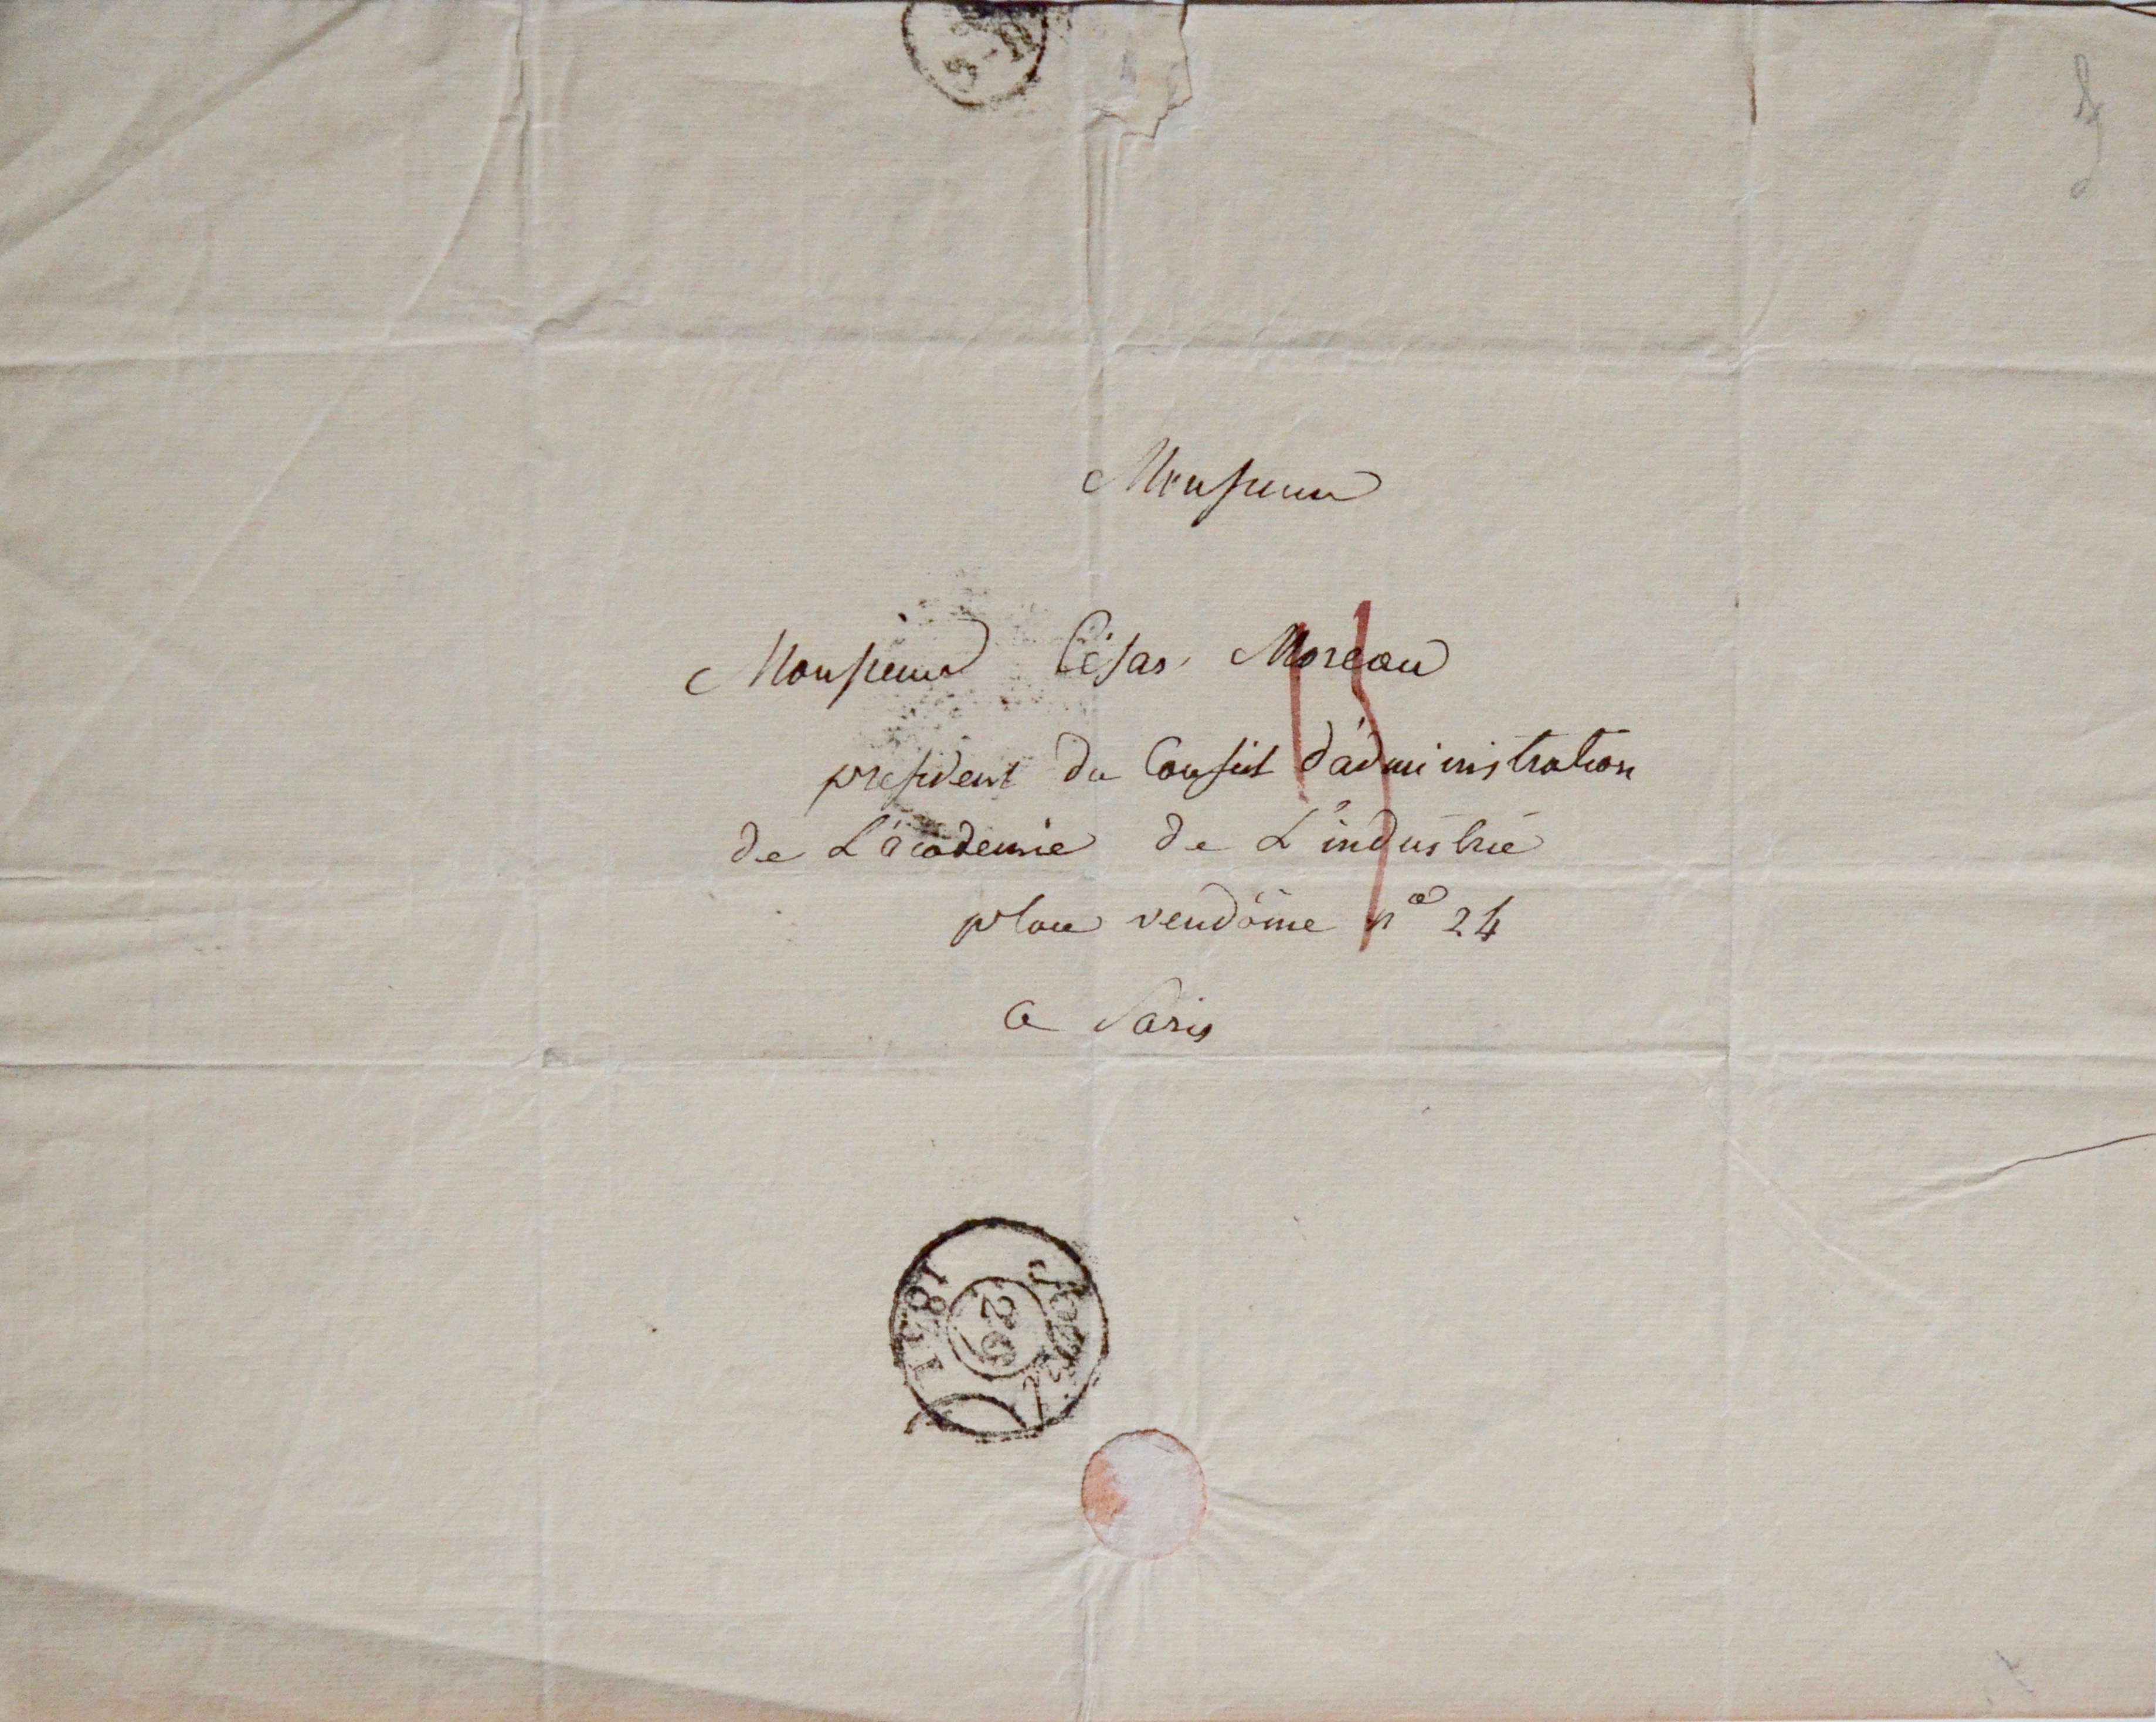 Monsieur
Monsieur César Moreau
president du Conseil d'administration
de L'academie de L'industrie
place vendôme nº 24
a Paris
1831
26